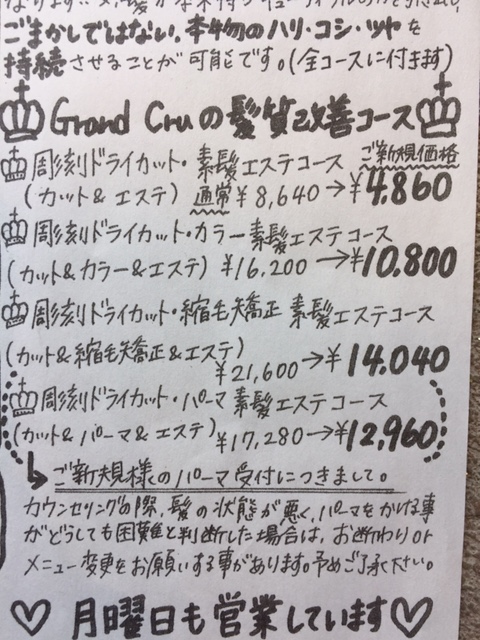 ごまかしではない、本物のハリ・コシ・ツヤを
持続させることが可能です。(全コースに付きます)
Grand Cruの髪質改善コース
彫刻ドライカット・素髪エステコース ご新規価格
(カット&エステ) 通常¥8,640→¥4.860
彫刻ドライカット・カラー素髪エステコース
(カット&カラー&エステ) ¥16,200→¥10.800
彫刻ドライカット・縮毛矯正 素髪エステコース
(カット&縮毛矯正&エステ)
¥21,600→¥14.040
彫刻ドライカット・パーマ 素髪エステコース
(カット&パーマ&エステ) ¥17,280→¥12,960
ご新規様のパーマ受付につきまして。
カウンセリングの際、髪の状態が悪く、パーマをかける事
がどうしても困難と判断した場合は、お断わりor
メニュー変更をお願いする事があります。予めご了承下さい。
♡ 月曜日も営業しています♡